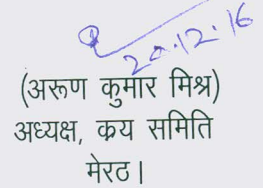 20.12.16
(अरूण कुमार मिश्र)
अध्यक्ष, क्रय समिति
मेरठ।